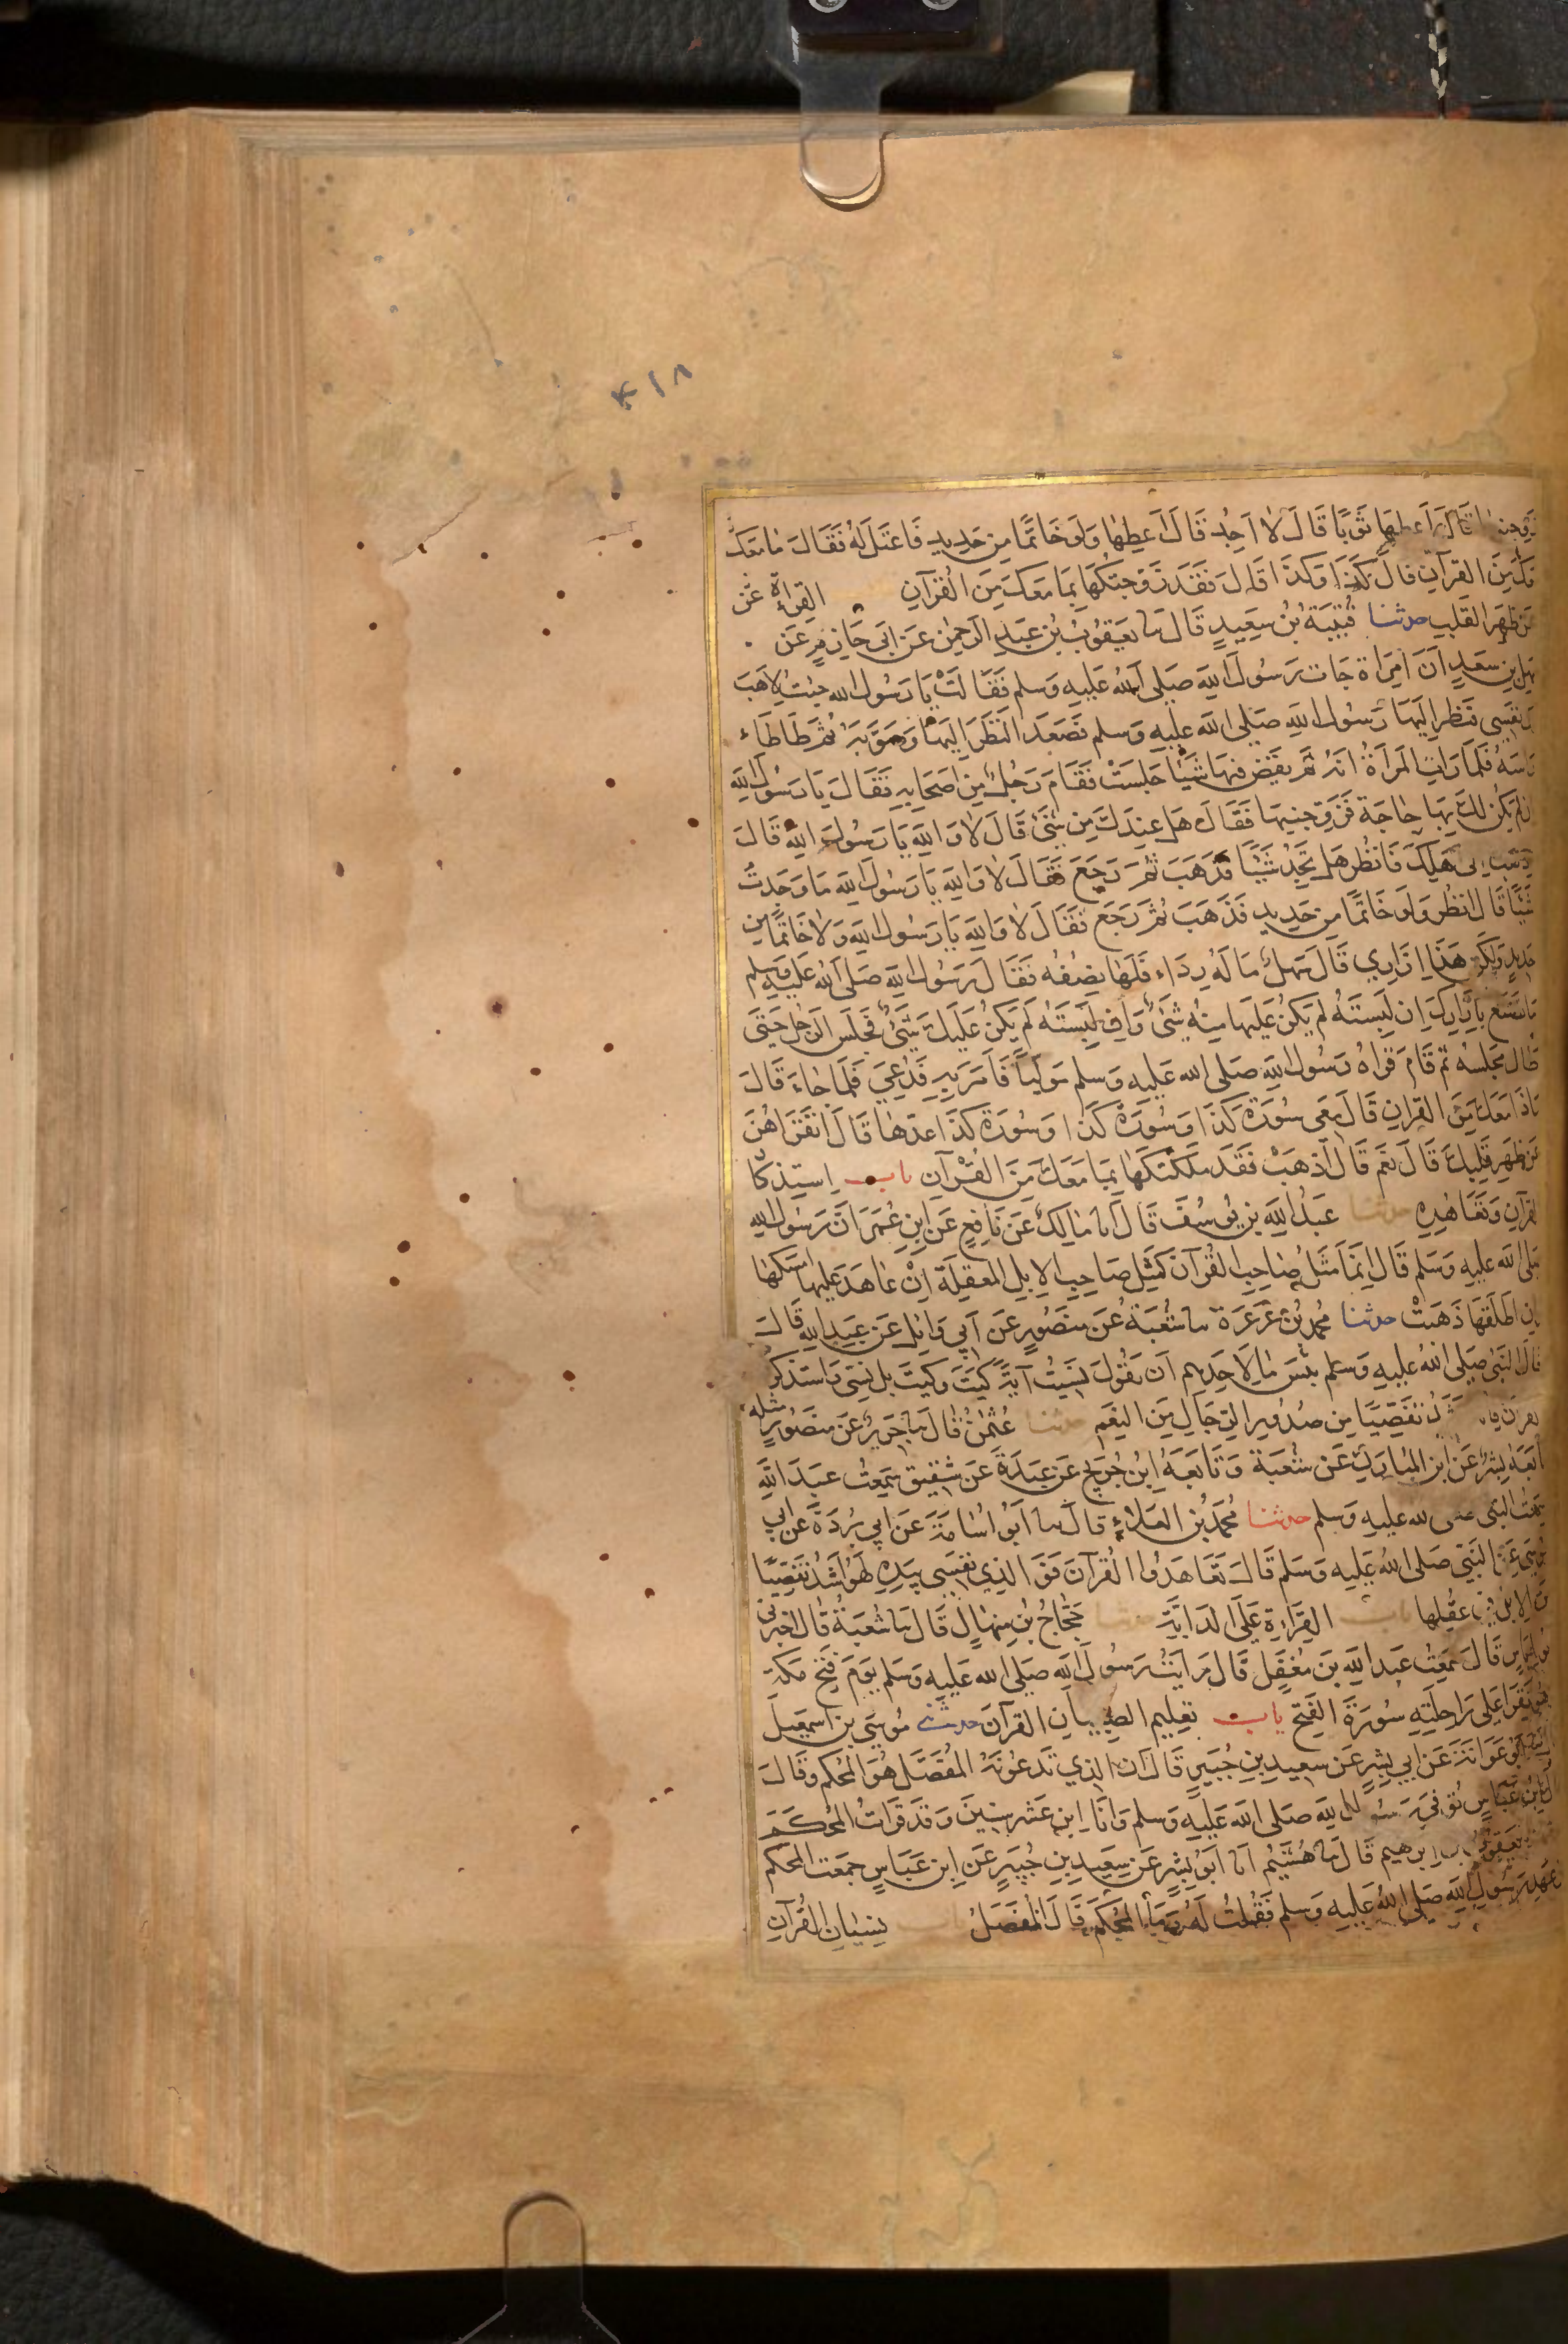 ۴۱۸
زوجنيها قال اعطها ثوبا قال لا اجد قال اعطها ولو خاتما من حديد فاعتل له فقال ما معك
من القرآن قال كذا وكذا قال فقد زوجتكها بما معك من القرآن القراءة عن
عن ظهر القلب حدثنا قتيبة بن سعيد قال نا يعقوب بن عبد الرحمن عن ابي حازم عن
سهل بن سعد ان امراة جات رسول الله صلى الله عليه وسلم فقالت يا رسول الله جئت لاهب
لك نفسي فنظر اليها رسول الله صلى الله عليه وسلم فصعد النظر اليها وصوبه ثم طاطاء
راسه فلما رات المراة انه لم يقض فيها شيئا جلست فقام رجل من اصحابه فقال يا رسول الله
ان لم يكن لك بها حاجة فزوجنيها فقال هل عندك من شئ قال لا والله يا رسول الله قال
اذهب الى اهلك فانظر هل تجد شيئا فذهب ثم رجع فقال لا والله يا رسول الله ما وجدت
شيئا قال انظر ولو خاتما من حديد فذهب ثم رجع فقال لا والله يا رسول الله ولا خاتما من
حديد ولكن هذا ازاري قال سهل ما له رداء فلها نصفه فقال رسول الله صلى الله عليه وسلم
ما تصنع بازارك ان لبسته لم يكن عليها منه شئ وان لبسته لم يكن عليك شئ فجلس الرجل حتى
طال مجلسه ثم قام فراه رسول الله صلى الله عليه وسلم موليا فامر به فدعي فلما جاء قال
ماذا معك من القران قال معي سورة كذا وسورة كذا وسورة كذا عدها قال اتقراهن
عن ظهر قلبك قال نعم قال اذهب فقد ملكتكها بما معك من القرآن باب استذكا
القرآن وتعاهده حدثنا عبد الله بن يوسف قال انا مالك عن نافع عن ابن عمر ان رسول الله
صلى الله عليه وسلم قال انما مثل صاحب القرآن كمثل صاحب الابل المعقلة ان عاهد عليها امسكها
وان اطلقها ذهبت حدثنا محمد بن عرعرة نا شعبة عن منصور عن ابي وائل عن عبد الله قال
قال النبي صلى الله عليه وسلم بئس ما لاحدهم ان يقول نسيت آية كيت وكيت بل نسي واستذكر
القرآن فانه اشد تفصيا من صدور الرجال من النعم حدثنا عثمن قال نا جرير عن منصور مثله
تابعه بشر عن ابن المبارك عن شعبة وتابعه ابن جريج عن عبدة عن شقيق سمعت عبد الله
سمعت النبي صلى الله عليه وسلم حدثنا محمد بن العلاء قال نا ابو اسامة عن ابي بردة عن ابي
موسى عن النبي صلى الله عليه وسلم قال تعاهدوا القرآن فو الذي نفسي بيده لهو اشد تفصيا
من الابل في عقلها باب القراءة على الدابة حدثنا حجاج بن منهال قال نا شعبة قال اخبرني
ابو اياس قال سمعت عبد الله بن مغفل قال رايت رسول الله صلى الله عليه وسلم يوم فتح مكة
وهو يقرا على راحلته سورة الفتح باب تعليم الصبيان القرآن حدثني موسى بن اسمعيل
ابو عوانة عن ابي بشر عن سعيد بن جبير قال ان الذي تدعونه المفصل هو المحكم وقال
قال ابن عباس توفي رسول الله صلى الله عليه وسلم وانا ابن عشر سنين وقد قرات المحكم
يعقوب بن ابرهيم قال نا هشيم انا ابو بشر عن سعيد بن جبير عن ابن عباس جمعت المحكم
عهد رسول الله صلى الله عليه وسلم فقلت له وما المحكم قال المفصل باب نسيان القرآن